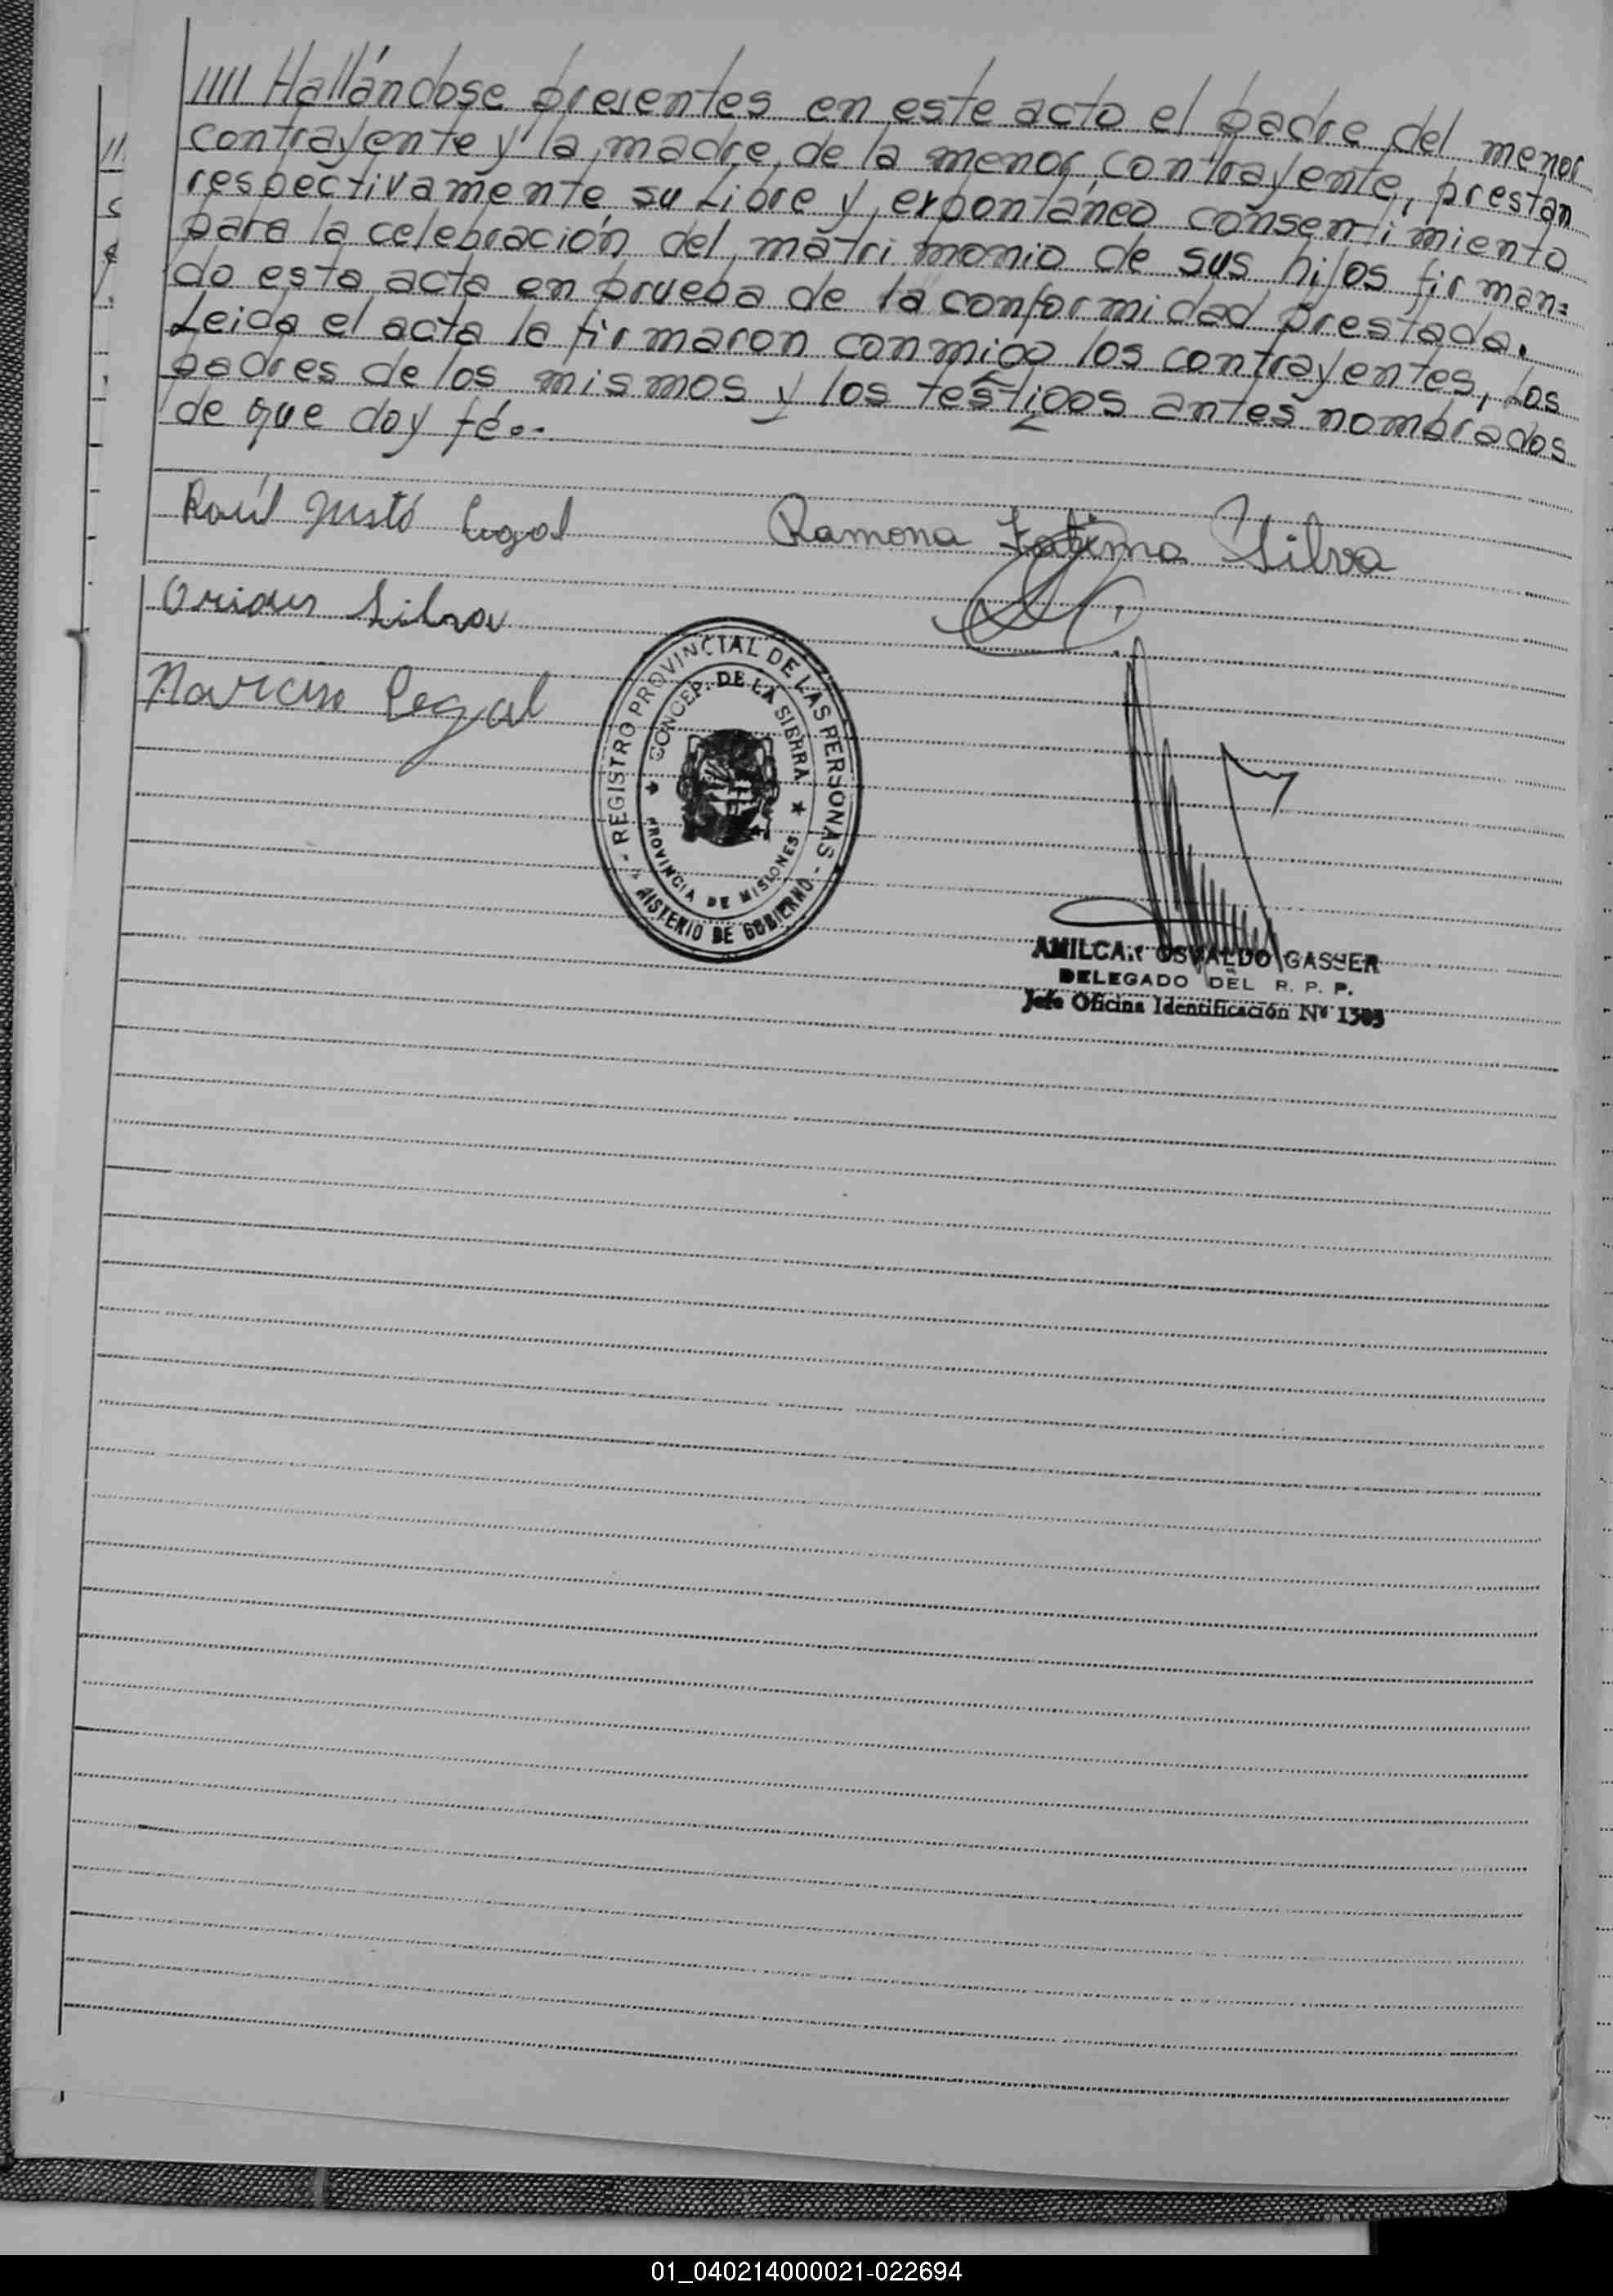 //// Hallándose presentes en este acto el padre del menor
contrayente y la madre de la menor contrayente, prestan
respectivamente, su Libre y expontáneo consentimiento
para la celebración del matrimonio de sus hijos firman=
do esta acta en prueba de la conformidad prestada.
Leida el acta la firmaron conmigo los contrayentes, Los
padres de los mismos y los testigos antes nombrados
de que doy fé.-
Raúl Justo Legal Ramona Fatima Silva
Silva
Narciso Legal
REGISTRO PROVINCIAL DE LAS PERSONAS
CONCEP. DE LA SIERRA
PROVINCIA DE MISIONES
NISTERIO DE GOBIERNO
AMILCAR OSVALDO GASSER
DELEGADO DEL R. P. P.
Jefe Oficina Identificación Nº
01_040214000021-022694